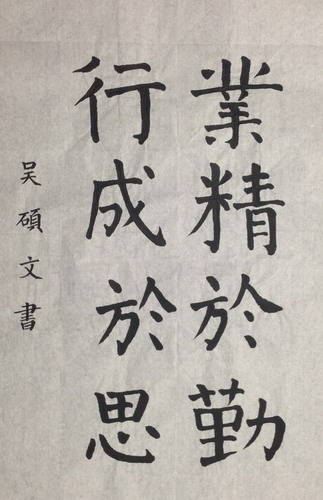 業精於勤
行成於思
吴碩文書